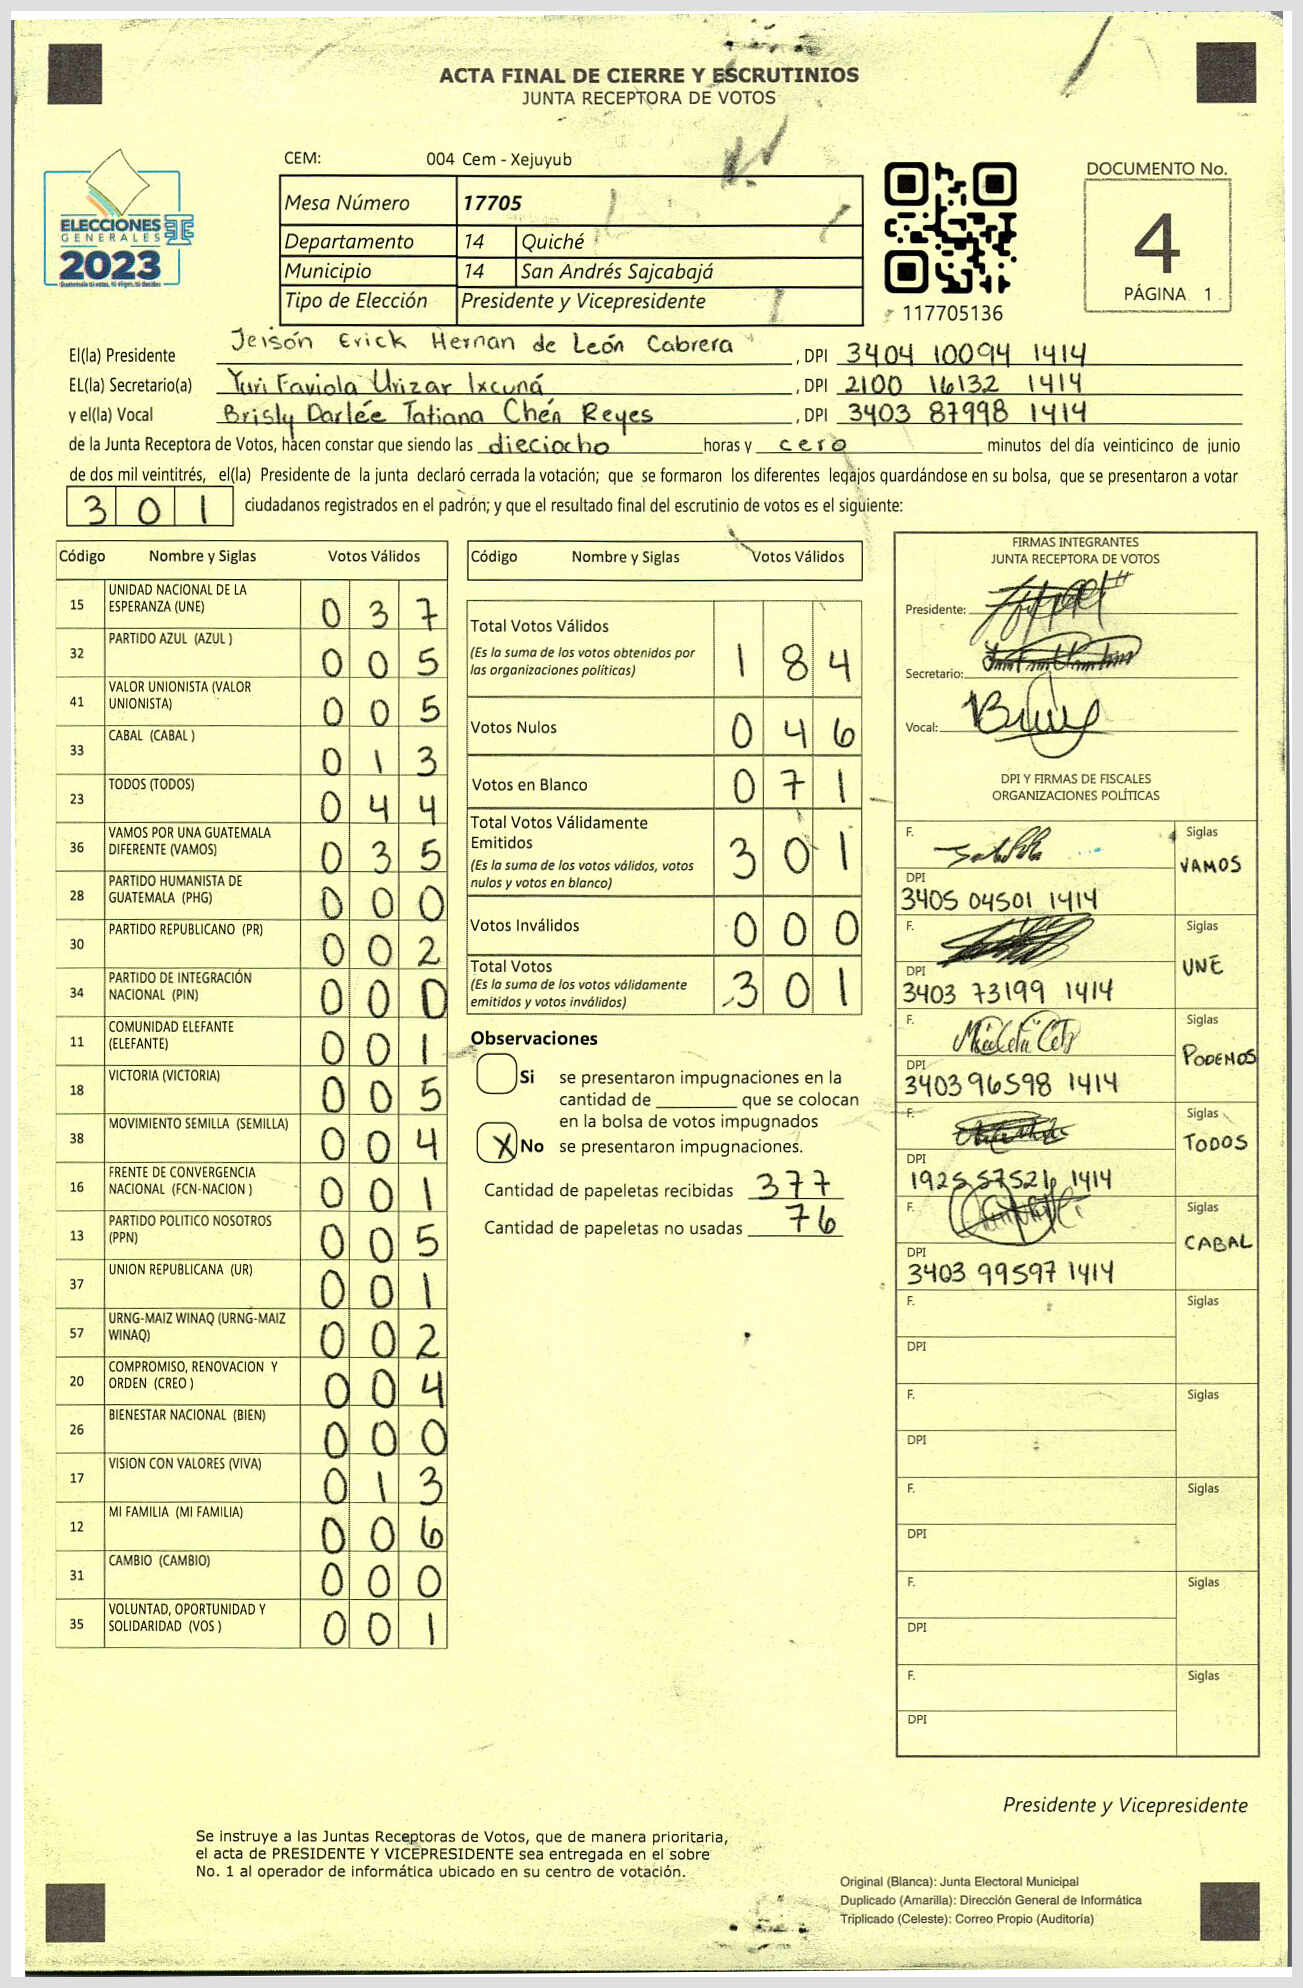 ACTA FINAL DE CIERRE Y ESCRUTINIOS
JUNTA RECEPTORA DE VOTOS
CEM: 004 Cem - Xejuyub
DOCUMENTO No.
4
PÁGINA 1
ELECCIONES
GENERALES
2023
Mesa Número 17705
Departamento 14 Quiché
Municipio 14 San Andrés Sajcabajá
Tipo de Elección Presidente y Vicepresidente
117705136
El(la) Presidente Jeisón Erick Hernan de León Cabrera , DPI 3404 10094 1414
EL(la) Secretario(a) Yuri Faviola Urizar Ixcuná , DPI 2100 16132 1414
y el(la) Vocal Brisly Darlée Tatiana Chén Reyes , DPI 3403 87998 1414
de la Junta Receptora de Votos, hacen constar que siendo las dieciocho horas y cero minutos del día veinticinco de junio
de dos mil veintitrés, el(la) Presidente de la junta declaró cerrada la votación; que se formaron los diferentes legajos guardándose en su bolsa, que se presentaron a votar
301 ciudadanos registrados en el padrón; y que el resultado final del escrutinio de votos es el siguiente:
Código Nombre y Siglas Votos Válidos
15 UNIDAD NACIONAL DE LA ESPERANZA (UNE) 0 3 7
32 PARTIDO AZUL (AZUL ) 0 0 5
41 VALOR UNIONISTA (VALOR UNIONISTA) 0 0 5
33 CABAL (CABAL ) 0 1 3
23 TODOS (TODOS) 0 4 4
36 VAMOS POR UNA GUATEMALA DIFERENTE (VAMOS) 0 3 5
28 PARTIDO HUMANISTA DE GUATEMALA (PHG) 0 0 0
30 PARTIDO REPUBLICANO (PR) 0 0 2
34 PARTIDO DE INTEGRACIÓN NACIONAL (PIN) 0 0 0
11 COMUNIDAD ELEFANTE (ELEFANTE) 0 0 1
18 VICTORIA (VICTORIA) 0 0 5
38 MOVIMIENTO SEMILLA (SEMILLA) 0 0 4
16 FRENTE DE CONVERGENCIA NACIONAL (FCN-NACION ) 0 0 1
13 PARTIDO POLITICO NOSOTROS (PPN) 0 0 5
37 UNION REPUBLICANA (UR) 0 0 1
57 URNG-MAIZ WINAQ (URNG-MAIZ WINAQ) 0 0 2
20 COMPROMISO, RENOVACION Y ORDEN (CREO ) 0 0 4
26 BIENESTAR NACIONAL (BIEN) 0 0 0
17 VISION CON VALORES (VIVA) 0 1 3
12 MI FAMILIA (MI FAMILIA) 0 0 6
31 CAMBIO (CAMBIO) 0 0 0
35 VOLUNTAD, OPORTUNIDAD Y SOLIDARIDAD (VOS ) 0 0 1
Código Nombre y Siglas Votos Válidos
Total Votos Válidos 1 8 4
(Es la suma de los votos obtenidos por
las organizaciones políticas)
Votos Nulos 0 4 6
Votos en Blanco 0 7 1
Total Votos Válidamente
Emitidos 3 0 1
(Es la suma de los votos válidos, votos
nulos y votos en blanco)
Votos Inválidos 0 0 0
Total Votos 3 0 1
(Es la suma de los votos válidamente
emitidos y votos inválidos)
Observaciones
Si se presentaron impugnaciones en la
cantidad de ________ que se colocan
en la bolsa de votos impugnados
X No se presentaron impugnaciones.
Cantidad de papeletas recibidas 377
Cantidad de papeletas no usadas 76
FIRMAS INTEGRANTES
JUNTA RECEPTORA DE VOTOS
Presidente:
Secretario:
Vocal:
DPI Y FIRMAS DE FISCALES
ORGANIZACIONES POLÍTICAS
F. Siglas
VAMOS
DPI
3405 04501 1414
F. Siglas
UNE
DPI
3403 73199 1414
F. Siglas
PODEMOS
DPI
3403 96598 1414
F. Siglas
TODOS
DPI
1925 57521 1414
F. Siglas
CABAL
DPI
3403 99597 1414
F. Siglas
DPI
F. Siglas
DPI
F. Siglas
DPI
F. Siglas
DPI
F. Siglas
DPI
Presidente y Vicepresidente
Se instruye a las Juntas Receptoras de Votos, que de manera prioritaria,
el acta de PRESIDENTE Y VICEPRESIDENTE sea entregada en el sobre
No. 1 al operador de informática ubicado en su centro de votación.
Original (Blanca): Junta Electoral Municipal
Duplicado (Amarilla): Dirección General de Informática
Triplicado (Celeste): Correo Propio (Auditoría)